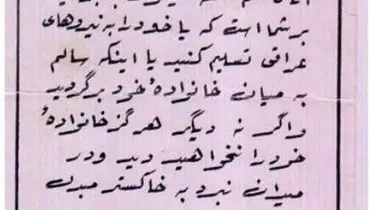 بر شما است که یا خود را به نیروهای
عراقی تسلیم کنید یا اینکه سالم
به میان خانوادهٔ خود برگردید
واگر نه دیگر هرگز خانوادهٔ
خود را نخواهید دید ودر
میدان نبرد به خاکستر مبدل